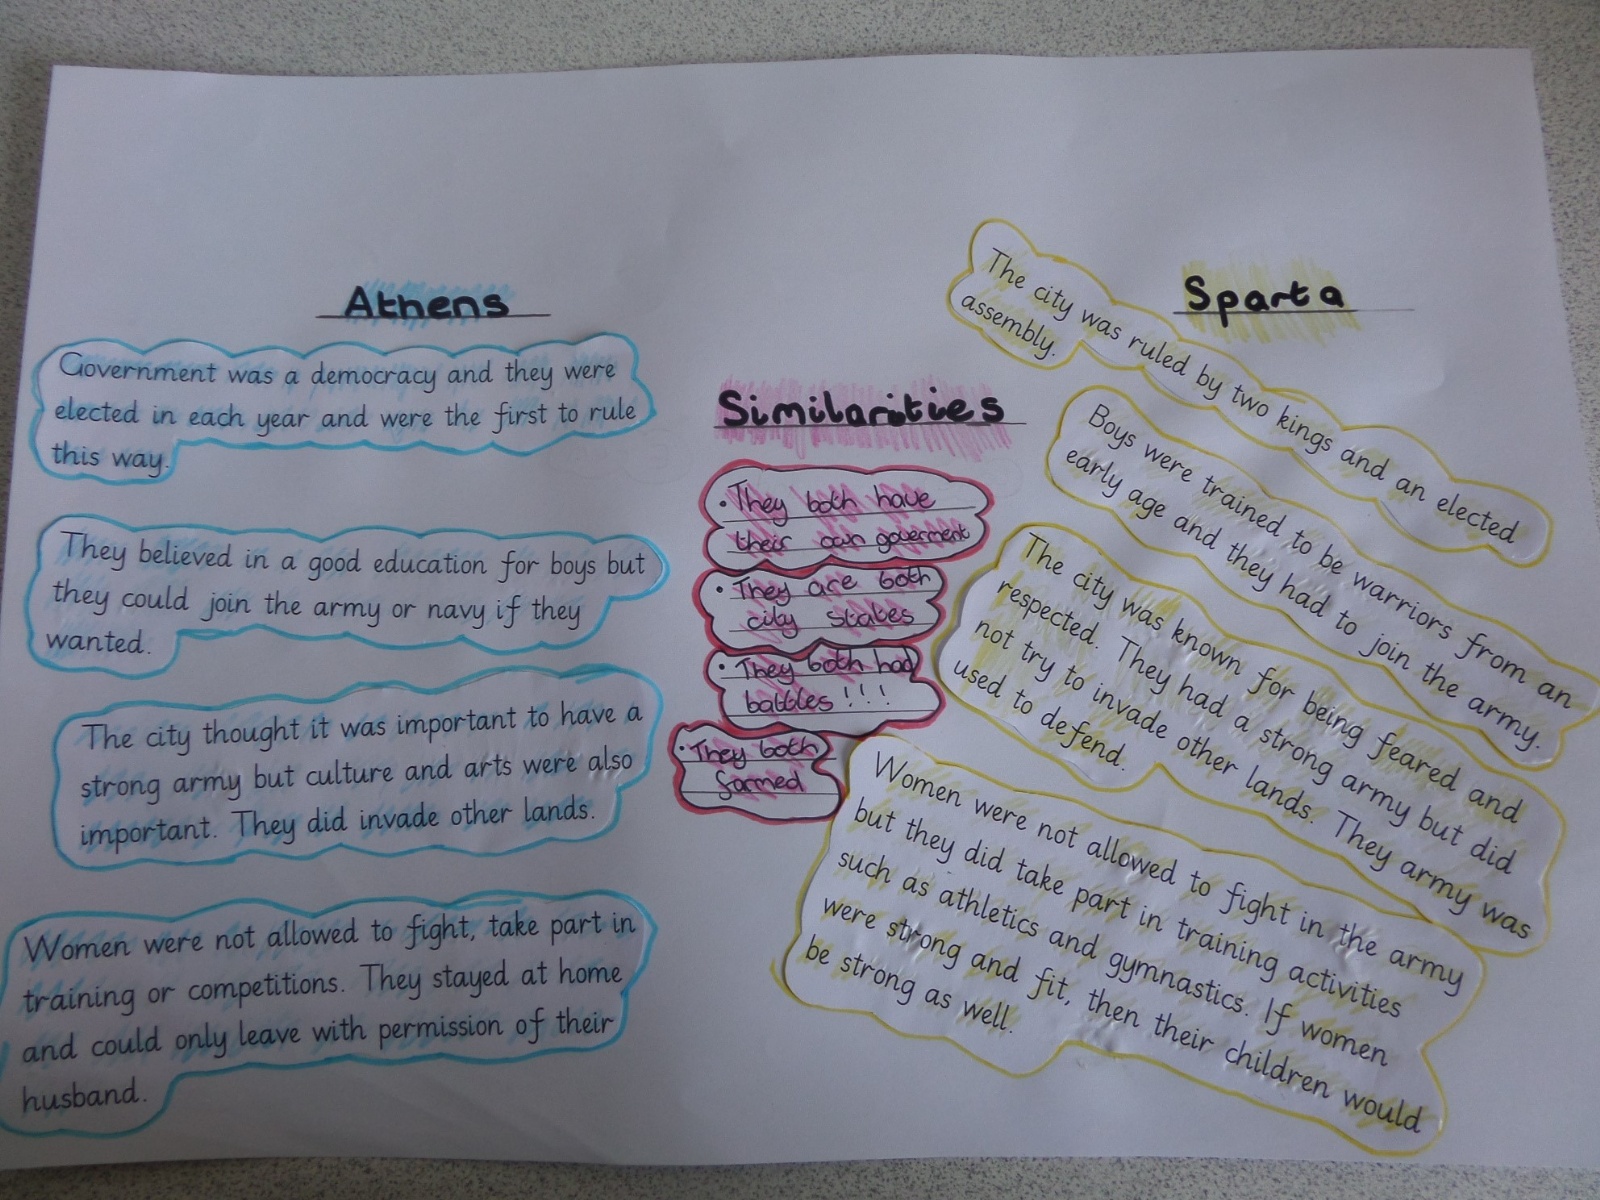 Athens
Government was a democracy and they were
elected in each year and were the first to rule
this way.
They believed in a good education for boys but
they could join the army or navy if they
wanted.
The city thought it was important to have a
strong army but culture and arts were also
important. They did invade other lands.
Women were not allowed to fight, take part in
training or competitions. They stayed at home
and could only leave with permission of their
husband.
Similarities
• They both have
their own goverment
• They are both
city states
• They both had
battles!!!
• They both
farmed
Sparta
The city was ruled by two kings and an elected
assembly.
Boys were trained to be warriors from an
early age and they had to join the army.
The city was known for being feared and
respected. They had a strong army but did
not try to invade other lands. They army was
used to defend.
Women were not allowed to fight in the army
but they did take part in training activities
such as athletics and gymnastics. If women
were strong and fit, then their children would
be strong as well.